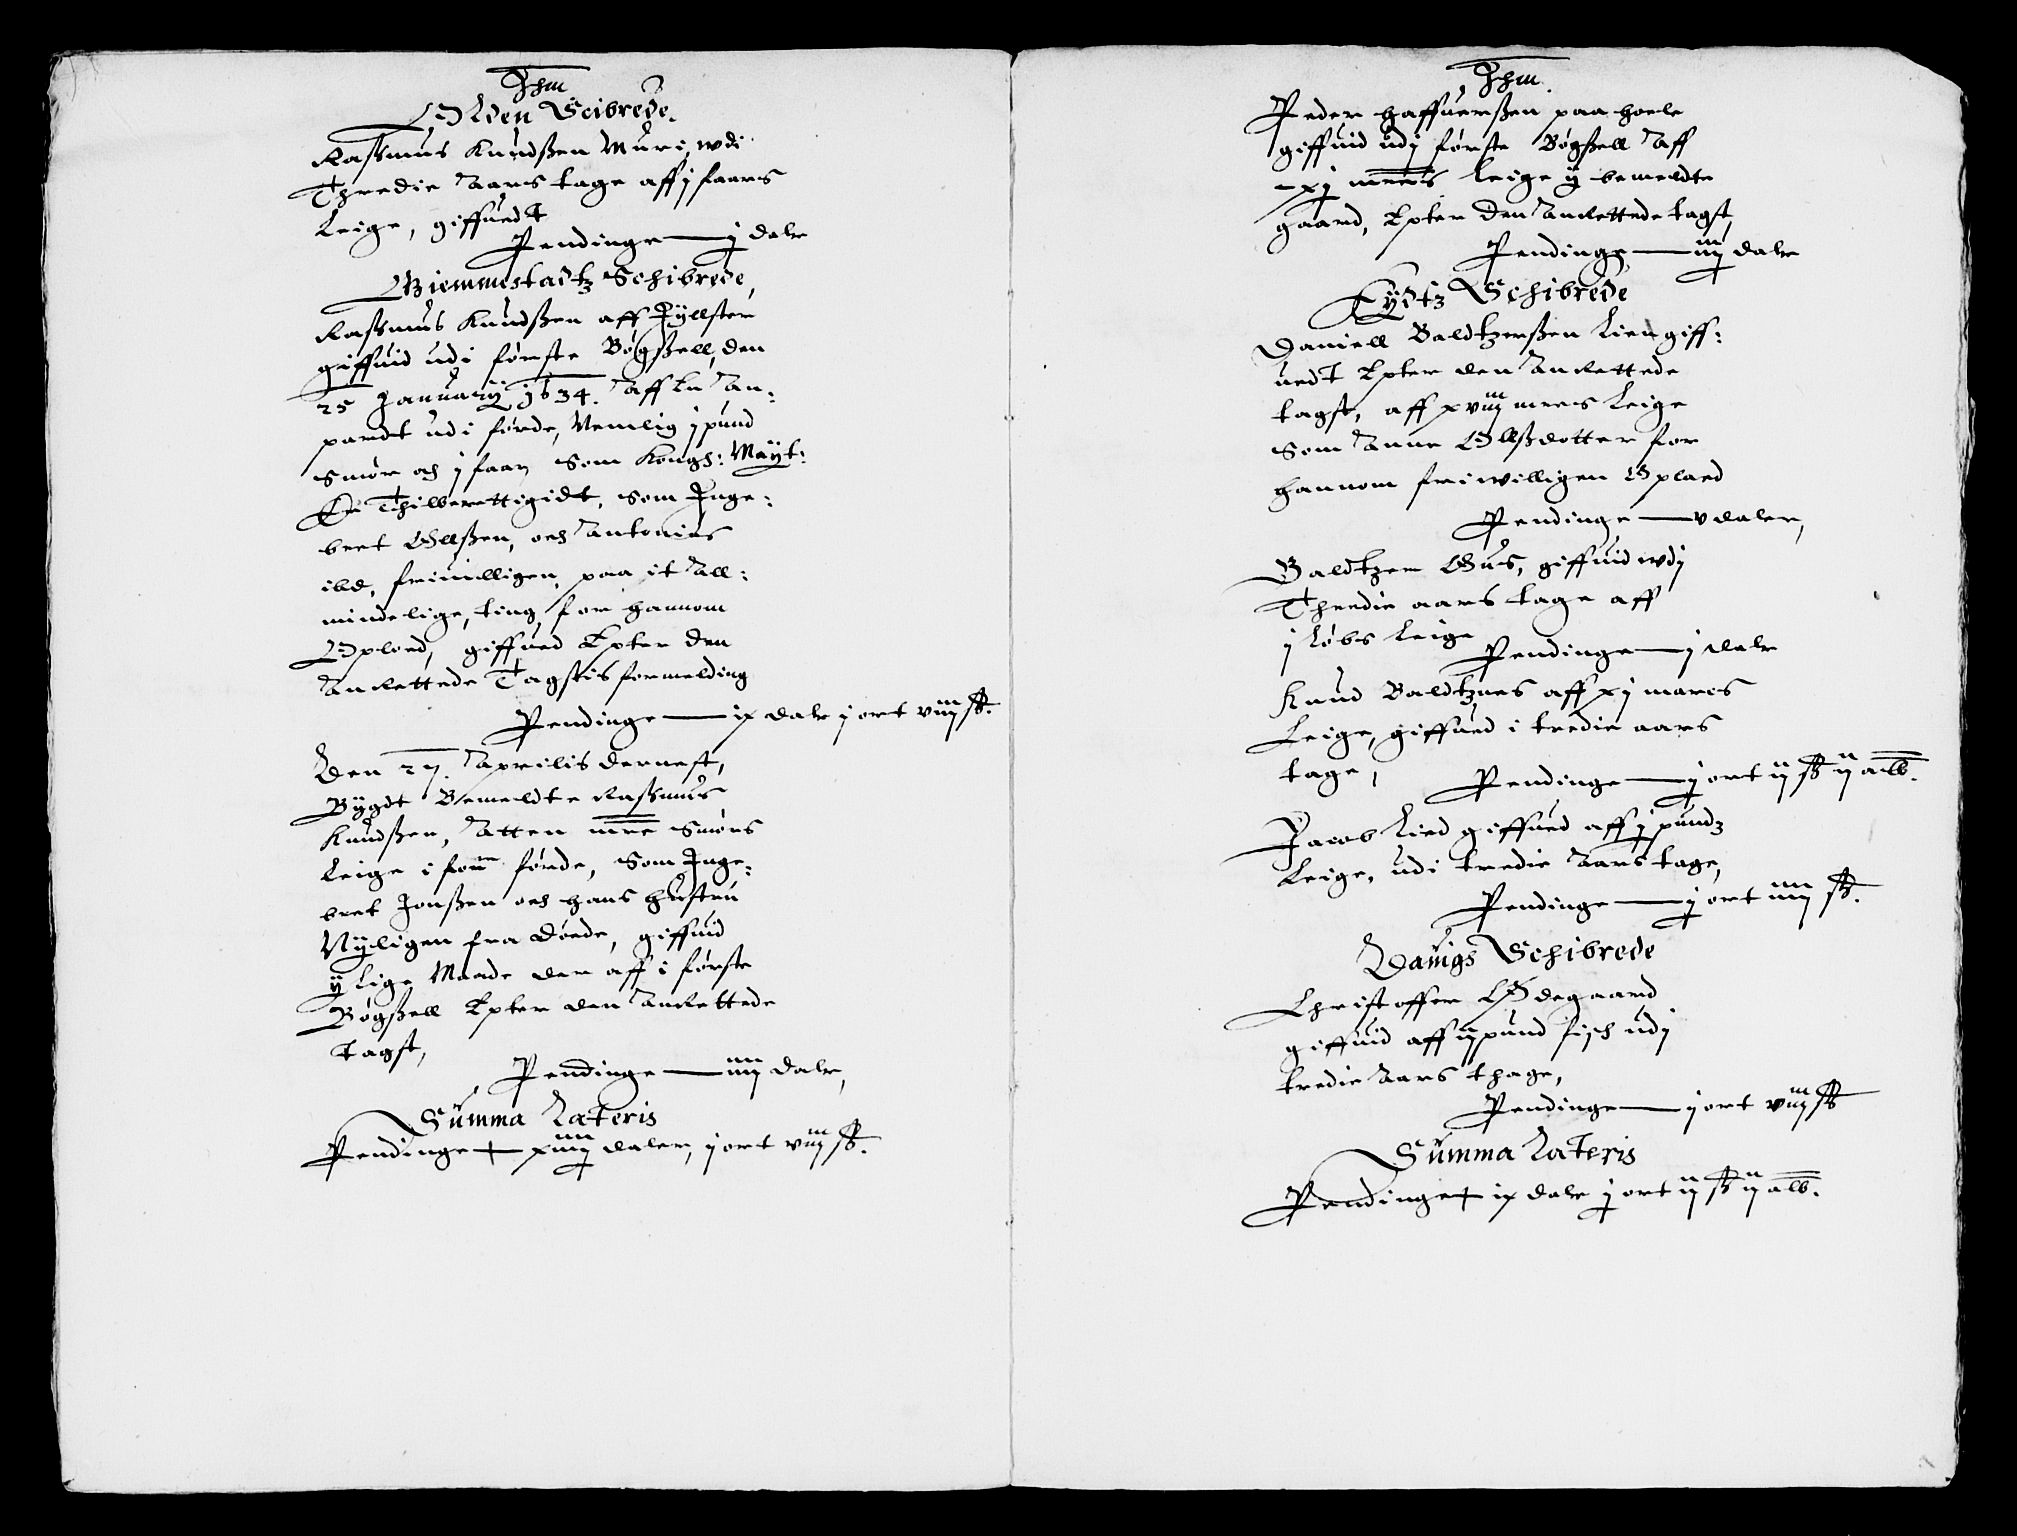 Ihm
Olden Scibrede.
Rassmus Knudßen Muri, wdi
Thredie Aars tage aff j faars
Leige, giffuedt
Pendinge — j dalr
Giemmestadtz Schibrede,
Rassmus Knudßen aff Jÿllster
giffuid udi første Bøgßell, den
25 Januarÿ 1634. Aff en An-
pardt udi førde, Nemlig j pund
smør och j faar som Kongh: Maÿt:
Er Thilberettigidt, som Inge-
bret Ollßen, och Antonius
ibd, friuilligen paa it All-
mindelige, ting, for hannom
Oploed, giffued Epter den
Anrettede Tagstis formelding
Pendinge — ix dalr j ort viij ß.
Den 27. Aprilis dernest,
Bÿgdt Bemeldte Rassmus
Knudßen, Atten mre Smørs
Leige i for førde, som Inge-
bret Jonßen och hans hustru
Nÿligen fra døede, giffuid
ÿ Lige Maade der aff i første
Bøgßell Epter den Anrettede
tagst,
Pendinge — iiij dalr,
Summa Lateris
Pendinge + xiiij daler, j ort viij ß.
Ihm.
Peder haffuerßen paa hoele
giffuid udj første Bøgßell Aff
xj mrers Leige ÿ bemeldte
gaard, Epter den Anrettede tagst,
Pendinge — iij dalr
Eÿdtz Schibrede
Daniell Baldtzerßen Lien giff-
uedt Epter den Anrettede
tagst, aff xviij mrers Leige
som Anne Ollßdotter for
hannom friwilligen Oplaed
Pendinge — v daler,
Baldtzer Gus, giffuid wdj
Thredie aars tage aff
j Løbs Leige
Pendinge — j dalr
Knud Baldtzers aff xj marcs
Leige, giffued i tredie aars
tage,
Pendinge — j ort ij ß ij alb.
Jacob Lied giffued aff j pundz
Leige, udi tredie Aars tage,
Pendinge — j ort iiij ß.
Dauigs Schibrede
Christoffer Ødegaard
giffuid aff ij pund fisch udj
tredie Aars thage,
Pendinge — j ort viij ß
Summa Lateris
Pendinge + ix dalr j ort ij ß ij alb.